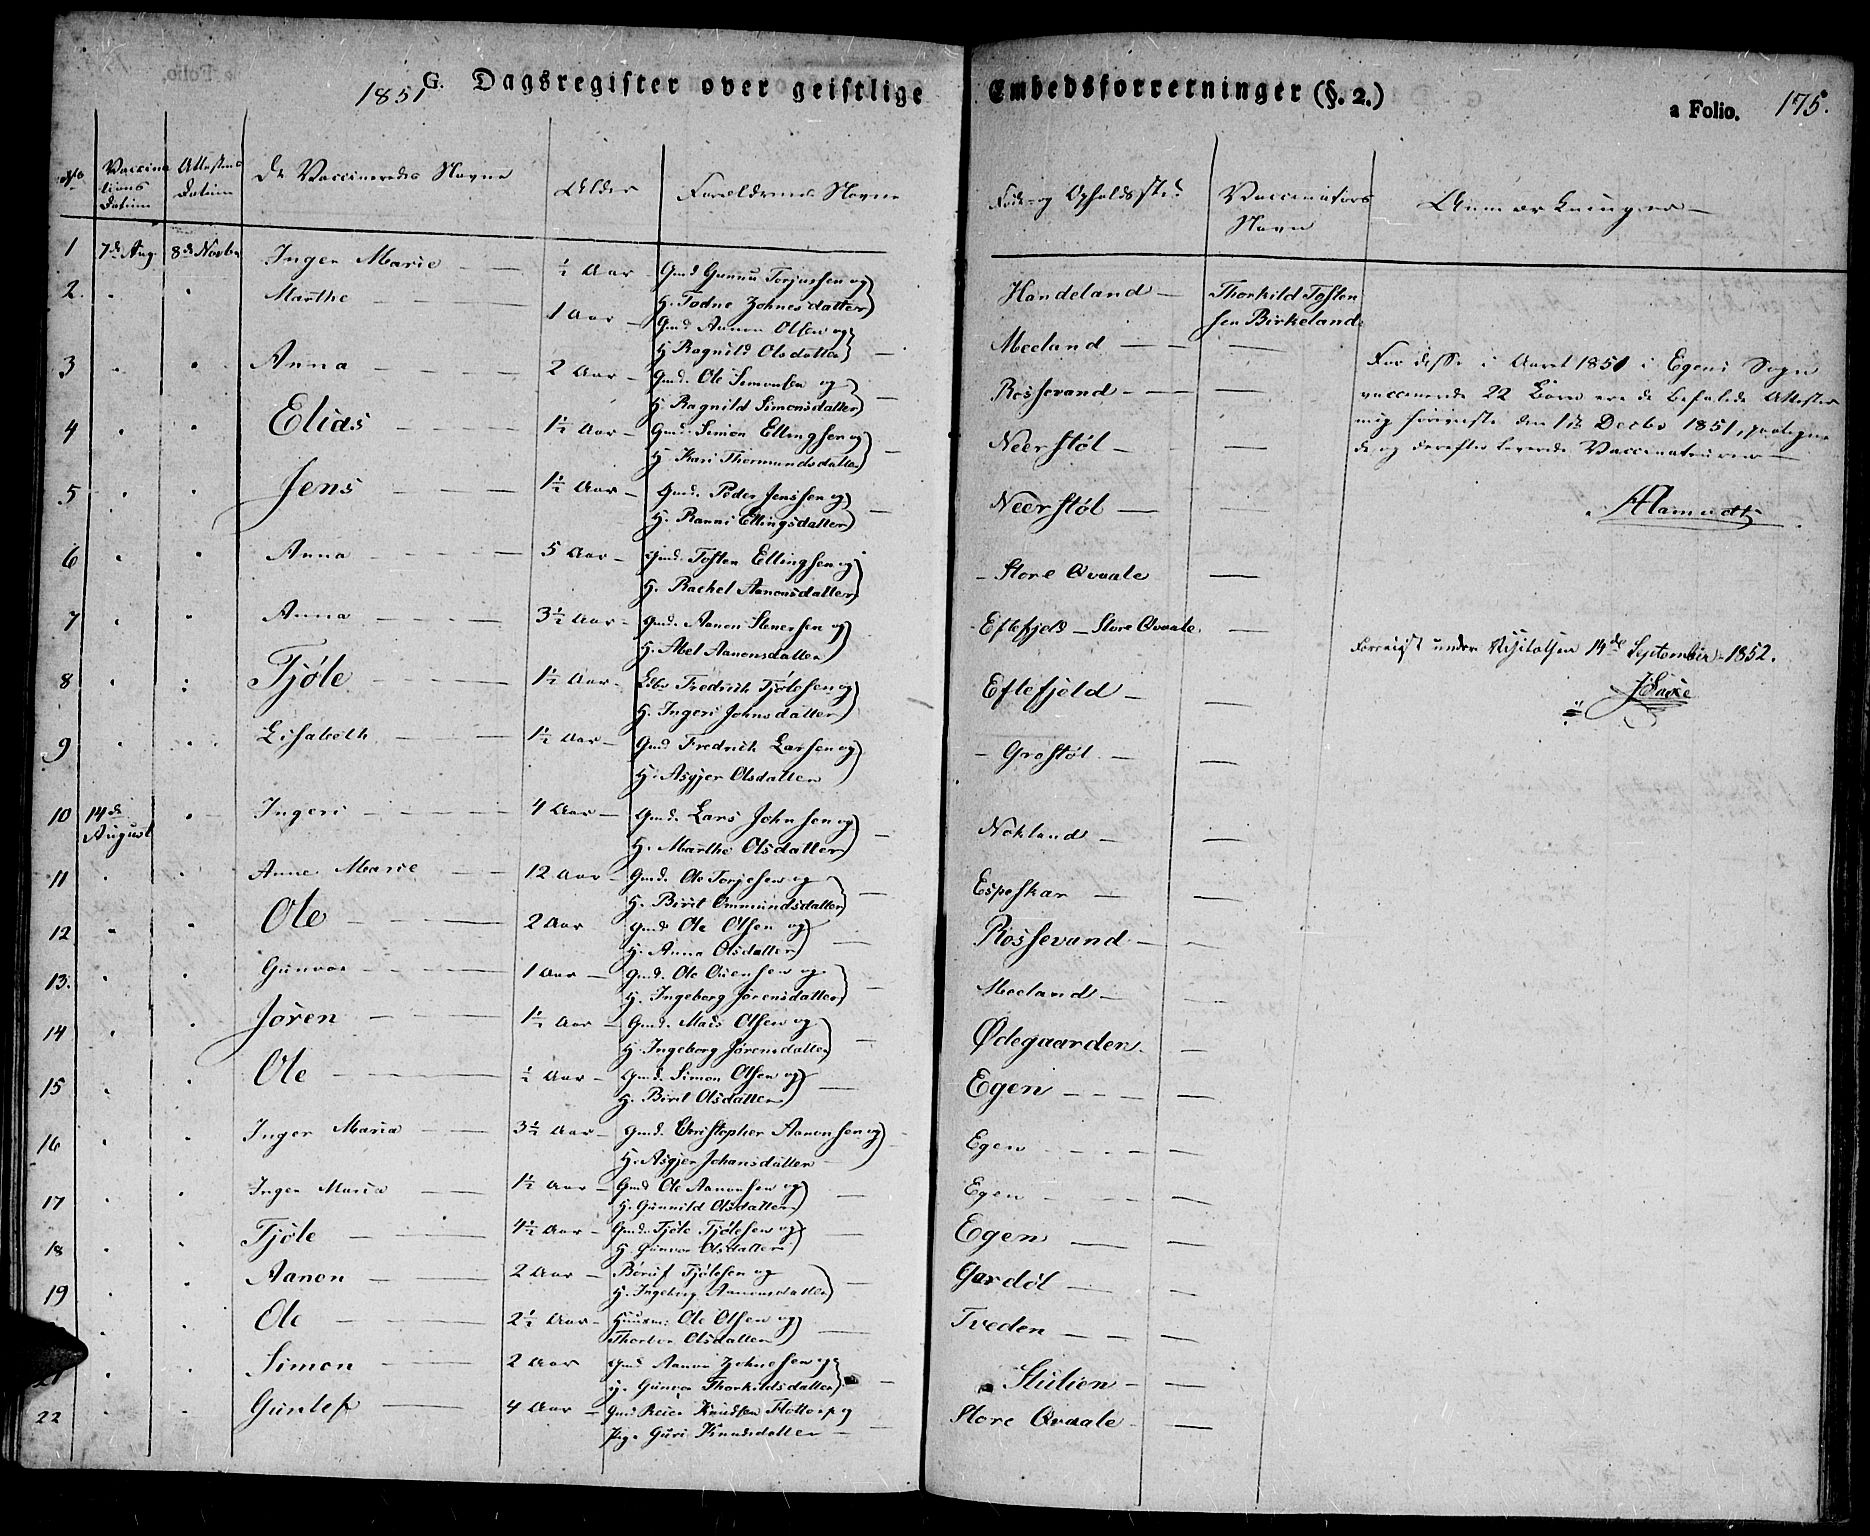 1851 G. Dagsregister over geistlige Embedsforretninger (§. 2.) a Folio. 175.
No Vaccinations Datum Attestens Datum De Vaccineredes Navne Alder Forældrenes Navne Føde- og Opholdssted Vaccinateurs Navn Anmærkninger
1 7de Aug. 8de Novbr Inger Marie ½ Aar Gmd Gunnu Torjussen og
H. Todne Johnesdatter Handeland Thorkild Tosten
sen Birkeland
2. Marthe 1 Aar Gmd Aanon Olsen og
H. Ragnild Olsdatter Meeland
3 Anna 2 Aar Gmd. Ole Simonsen og
H. Ragnild Simonsdatter Rossevand
4 Elias 1½ Aar Gmd. Simon Ellingsen og
H. Kari Thormundsdatter Neerstøl
5 Jens 1½ Aar Gmd. Peder Jenssen og
H. Ranni Ellingsdatter Neerstøl
6 Anna 5 Aar Gmd. Tosten Ellingsen og
H. Rachel Aanonsdatter Store Qvaale
7 Anna 3½ Aar Gmd. Aanon Stenersen og
H. Abel Aanonsdatter Eftefjeld - Store Qvaale
8 Tjøle 1½ Aar Fredrik Tjølesen og
H. Ingeri Johnsdatter Eftefjeld
9 Lisabeth 1½ Aar Gmd Fredrik Larsen og
H. Asgjer Olsdatter Grostøl
10 14de August Ingeri 4 Aar Gmd. Lars Johnsen og
H. Marthe Olsdatter Nokland
11 Anne Marie 12 Aar Gmd. Ole Torjesen og
H. Birit Ommundsdatter Espeskar
12 Ole 2 Aar Gmd. Ole Olsen og
H. Anna Olsdatter Rossevand
13. Gunvor 1 Aar Gmd. Ole Osensen og
H. Ingeborg Jørensdatter Meeland
14 Jøren 1½ Aar Gmd. Mads Olsen og
H. Ingeborg Jørensdatter Ødegaarden
15 Ole ½ Aar Gmd. Simon Olsen og
H. Birit Olsdatter Egen
16 Inger Maria 3½ Aar Gmd. Christopher Aanonsen og
H. Asgjer Johansdatter Egen
17 Inger Maria 1½ Aar Gmd Ole Aanonsen og
H. Gunnild Olsdatter Egen
18 Tjøle 4½ Aar Gmd. Tjøle Tjølesen og
H. Gunvor Olsdatter Egen
19 Aanon 2 Aar Børuf Tjølesen og
H. Ingeborg Aanonsdatter Gardøl
Ole 2½ Aar Huusm. Ole Olsen og
Thorbor Olsdatter Tveden
21 Simon 2 Aar Gmd Aanon Johnesen og
H. Gunvor Thorkildsdatter Stulien
22 Guntef 4 Aar Gmd Reier Knudsen Flottorp og
Pige Guri Knudsdatter Store Qvaale
For disse i Aaret 1851 i Egens Sogn
vaccinerede 22 Børn ere de befalede Attester
mig foreviste den 1ste Decbr 1851, protegne
de og derefter leverede Vaccinateuren
Forevist under Visitatsen 14de September 1852.